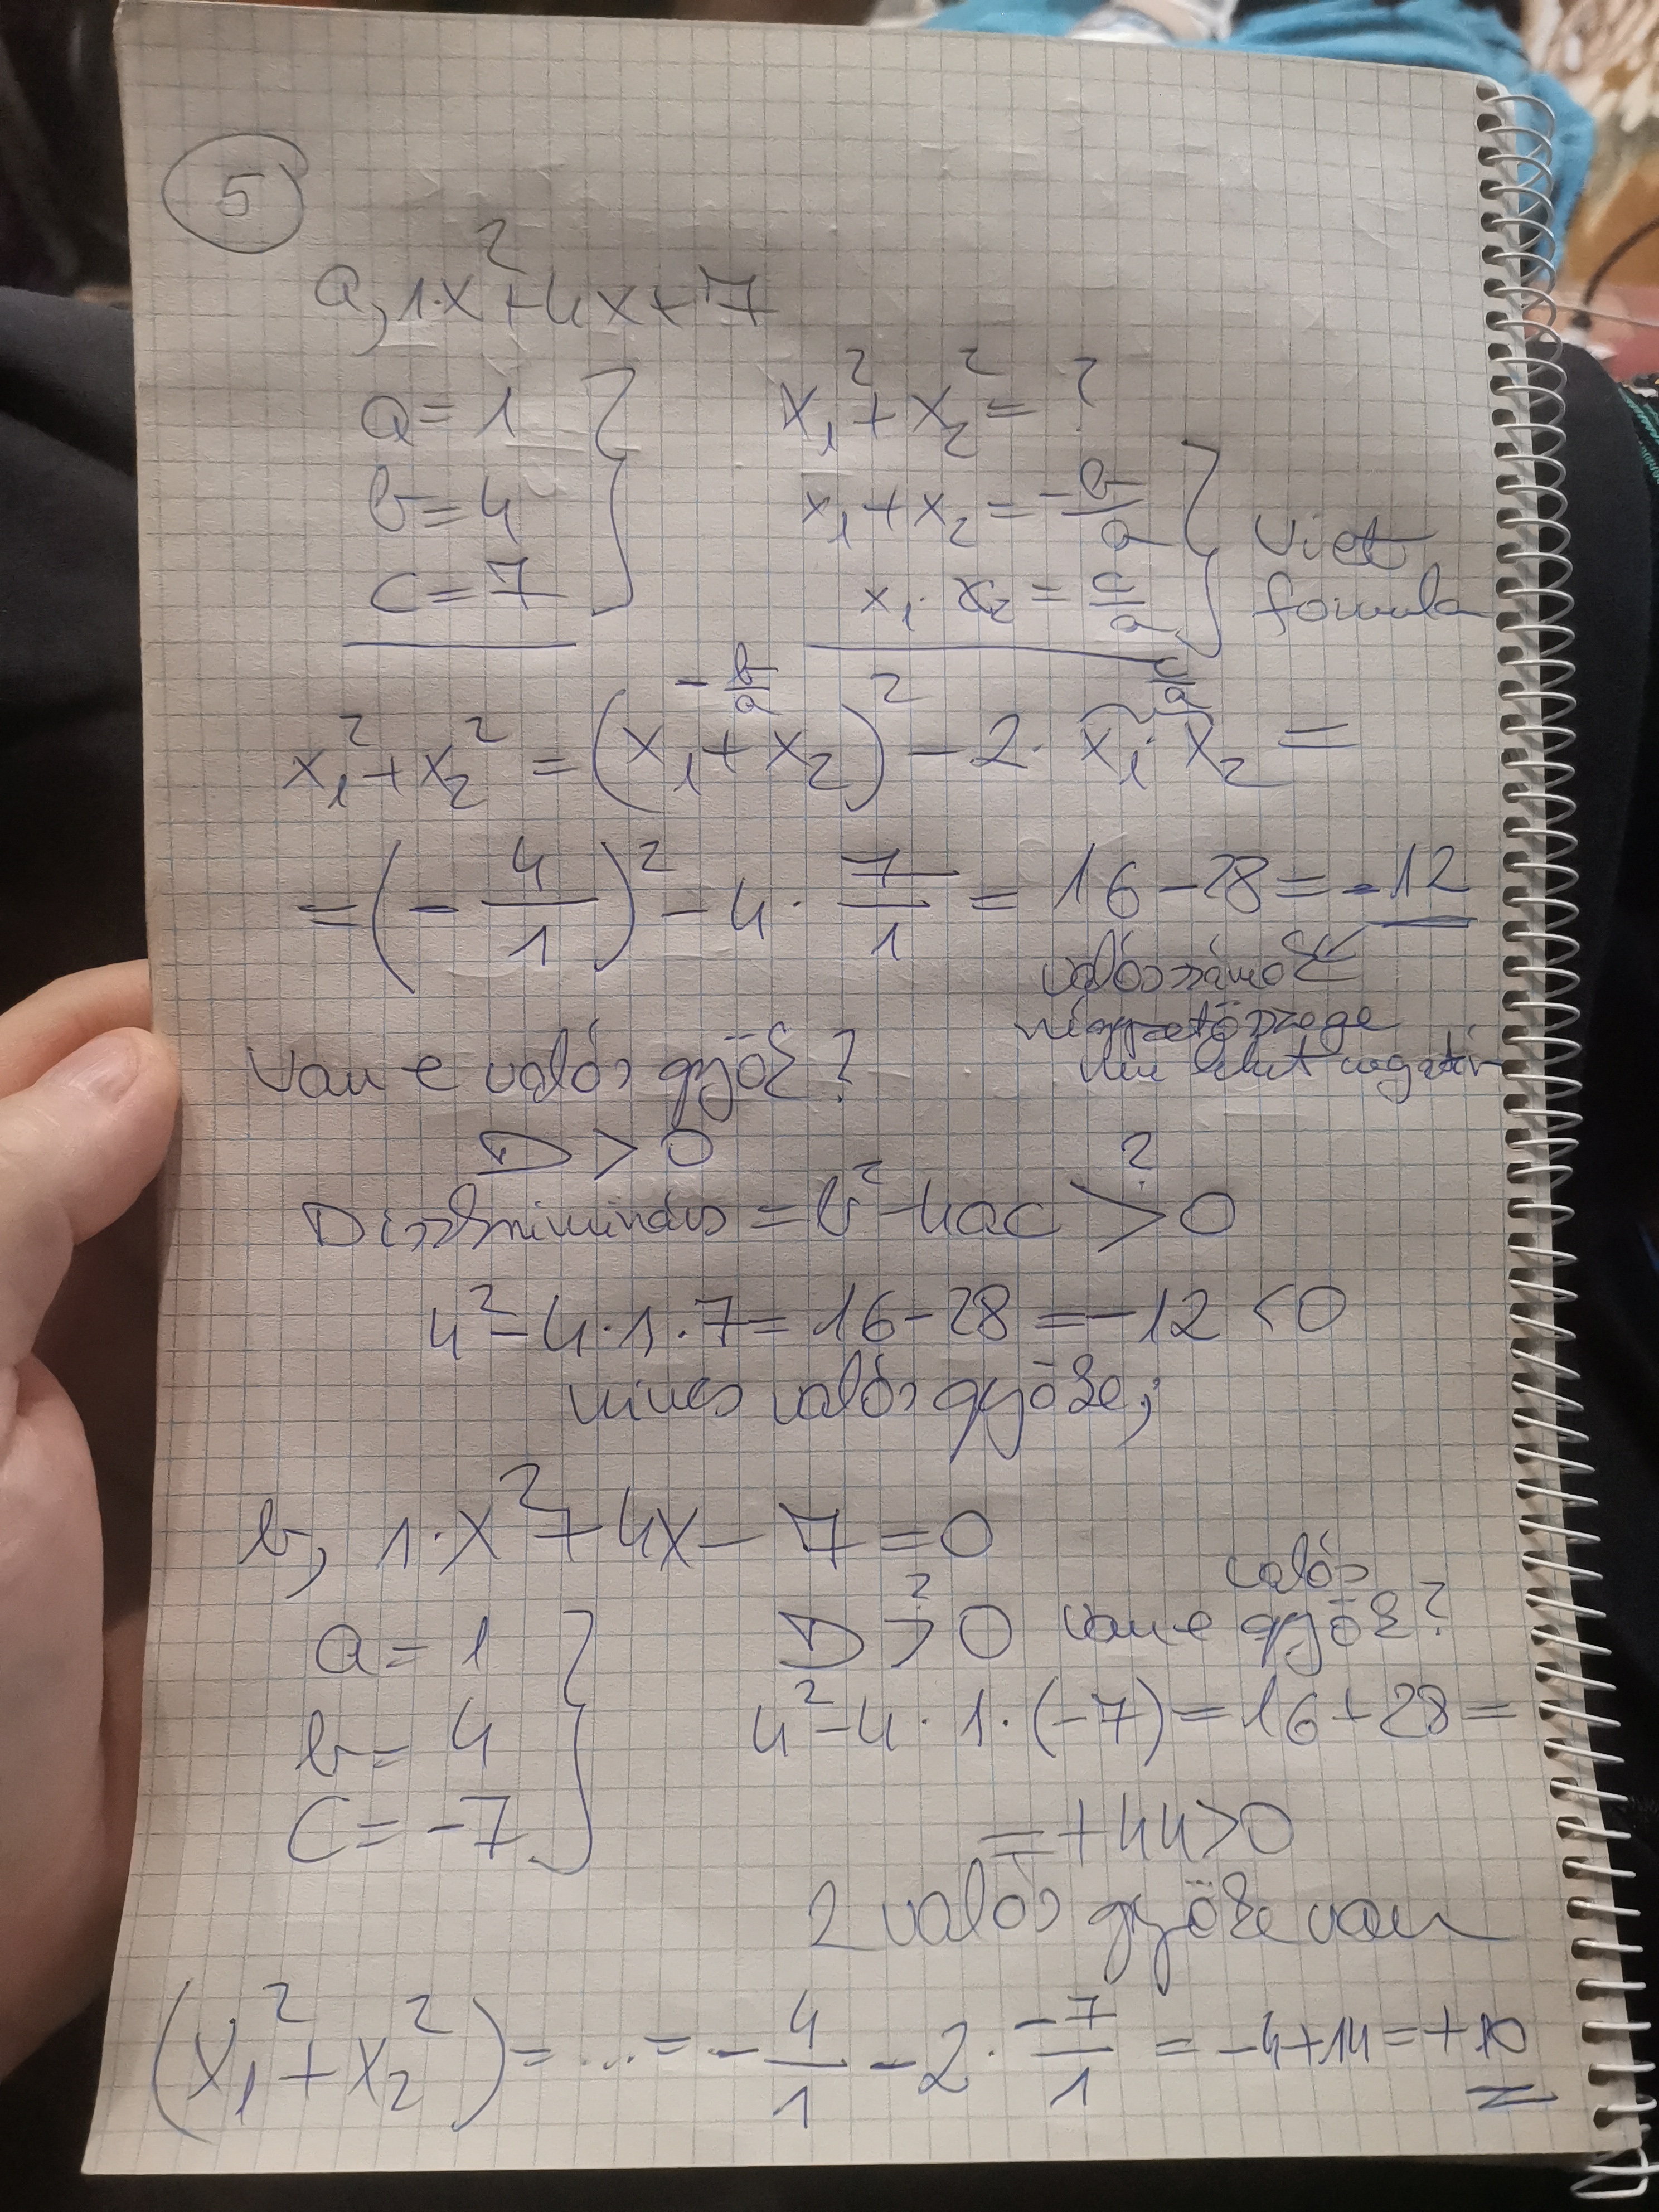 5
a, 1·x² + 4x + 7
a = 1
b = 4
c = 7
x₁² + x₂² = ?
x₁ + x₂ = -b/a
x₁ · x₂ = c/a
Viet
formula
-b/a
c/a
x₁² + x₂² = (x₁ + x₂)² - 2 · x₁ · x₂ =
= (-4/1)² - 4 · 7/1 = 16 - 28 = -12
valós számok
négyzetösszege
nem lehet negatív
Van e valós gyök?
D > 0
Diszkrimináns = b² - 4ac >? 0
4² - 4 · 1 · 7 = 16 - 28 = -12 < 0
nincs valós gyöke;
b, 1·x² + 4x - 7 = 0
a = 1
b = 4
C = -7
D >? 0 van e valós gyök?
4² - 4 · 1 · (-7) = 16 + 28 =
= +44 > 0
2 valós gyöke van
(x₁² + x₂²) = ... = -4/1 - 2 · -7/1 = -4 + 14 = +10